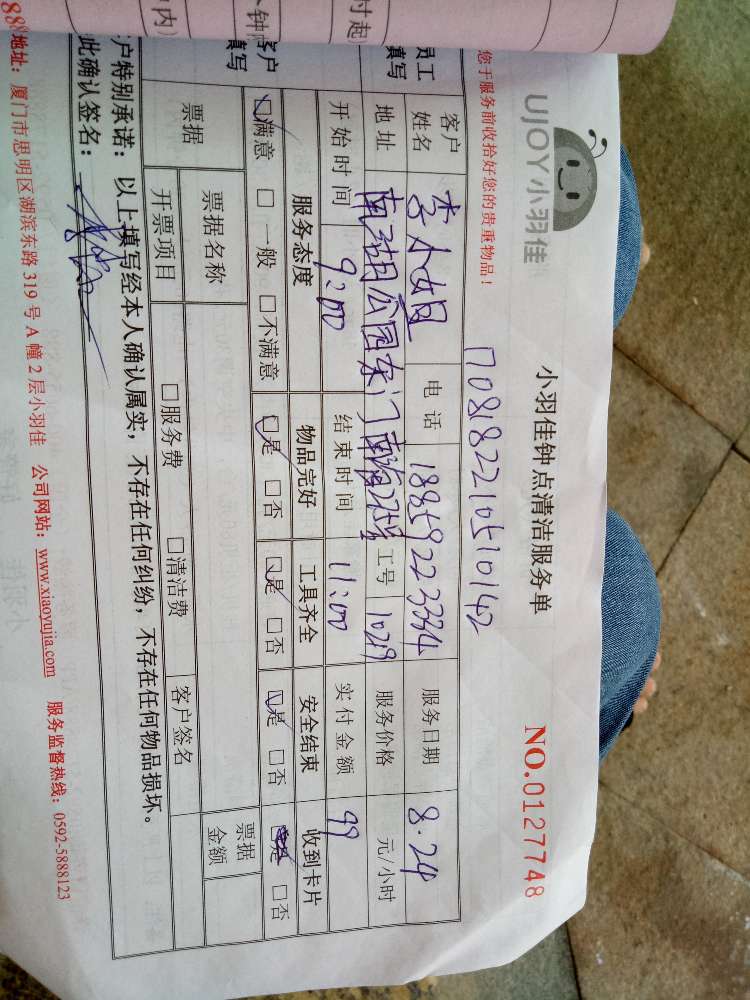 UJOY小羽佳
小羽佳钟点清洁服务单
NO.0127748
您于服务前收拾好您的贵重物品！
客户姓名 李小姐 电话 18859223334 服务日期 8.24
地址 南湖公园东门 工号 10219 服务价格 元/小时
开始时间 9:00 结束时间 11:00 实付金额 99
服务态度 物品完好 工具齐全 安全结束 收到卡片
☑满意 □一般 □不满意 ☑是 □否 ☑是 □否 ☑是 □否 是 □否
票据 票据名称 票据金额
开票项目 □服务费 □清洁费 客户签名
户特别承诺：以上填写经本人确认属实，不存在任何纠纷，不存在任何物品损坏。
此确认签名：
地址：厦门市思明区湖滨东路 319 号 A 幢 2 层小羽佳 公司网站：www.xiaoyujia.com 服务监督热线：0592-5888123
员工
填写
客户
填写
时起)
钟
内)
888